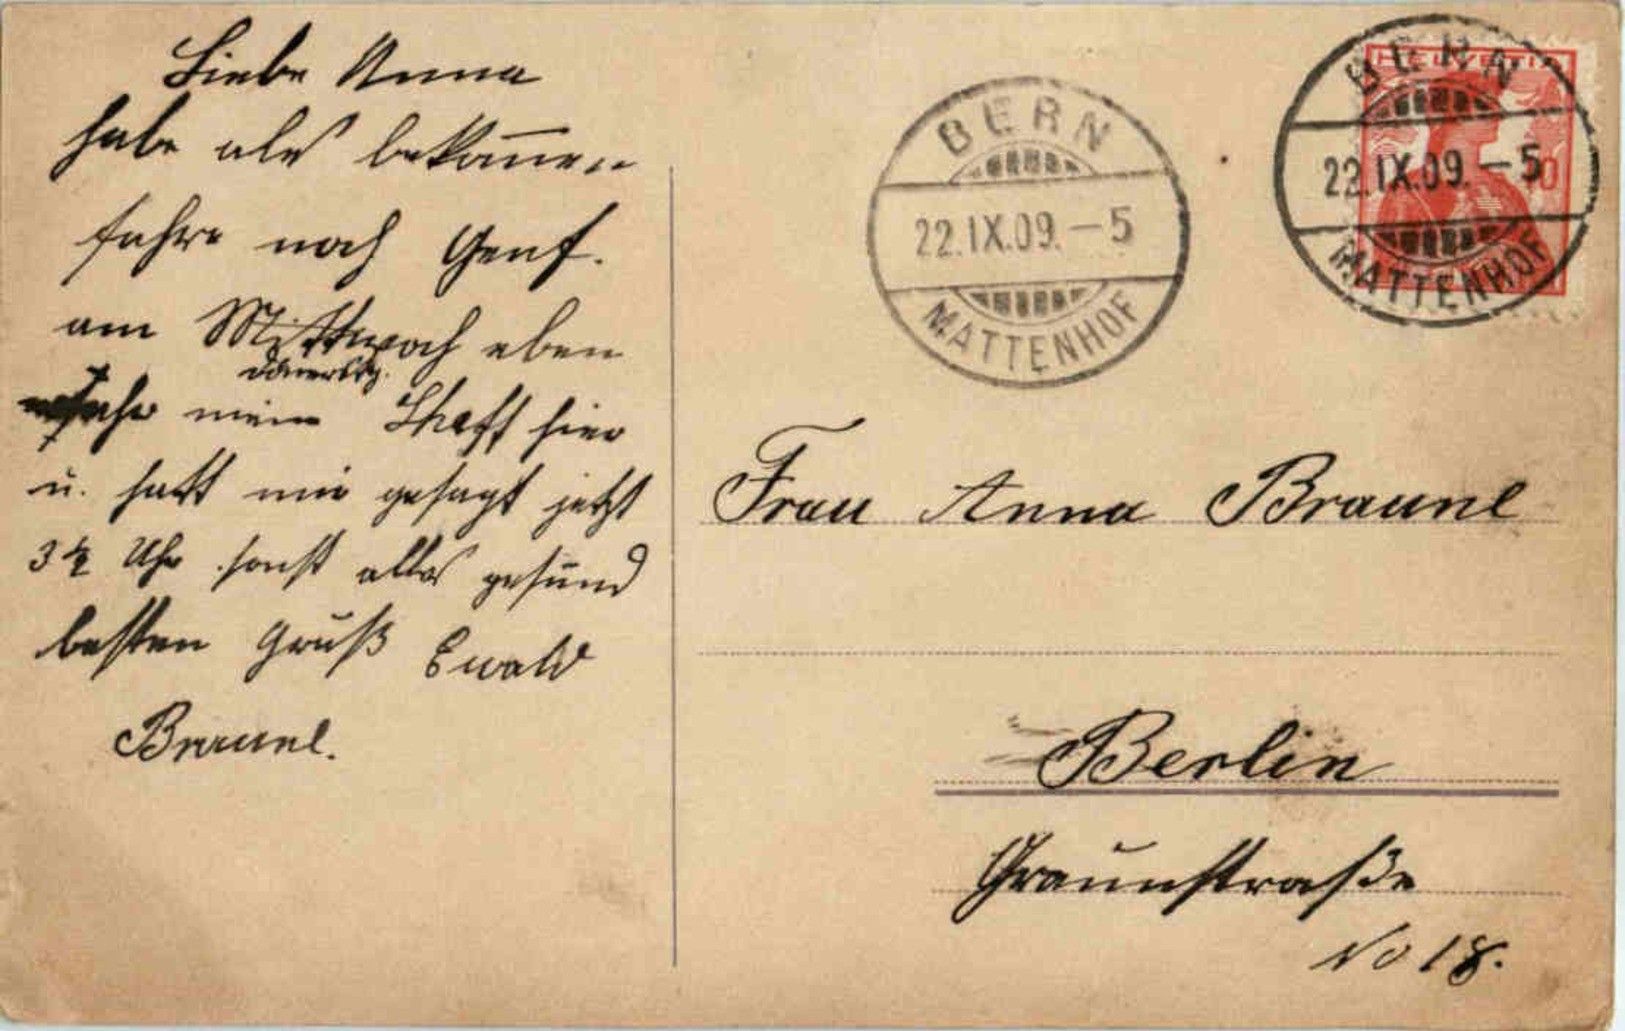 Liebe Anna
habe als bekommen
fahre nach Genf.
am Mittwoch eben
Donnerstg.
mein hier
u. hatt mir gesagt jetzt
3 ½ Uhr sonst alles gesund
besten Gruß Ewald
Braunel.
BERN
22.IX.09.-5
MATTENHOF
HELVETIA
10
BERN
22.IX.09.-5
MATTENHOF
Frau Anna Braunel
Berlin
Graunstraße
No 18.